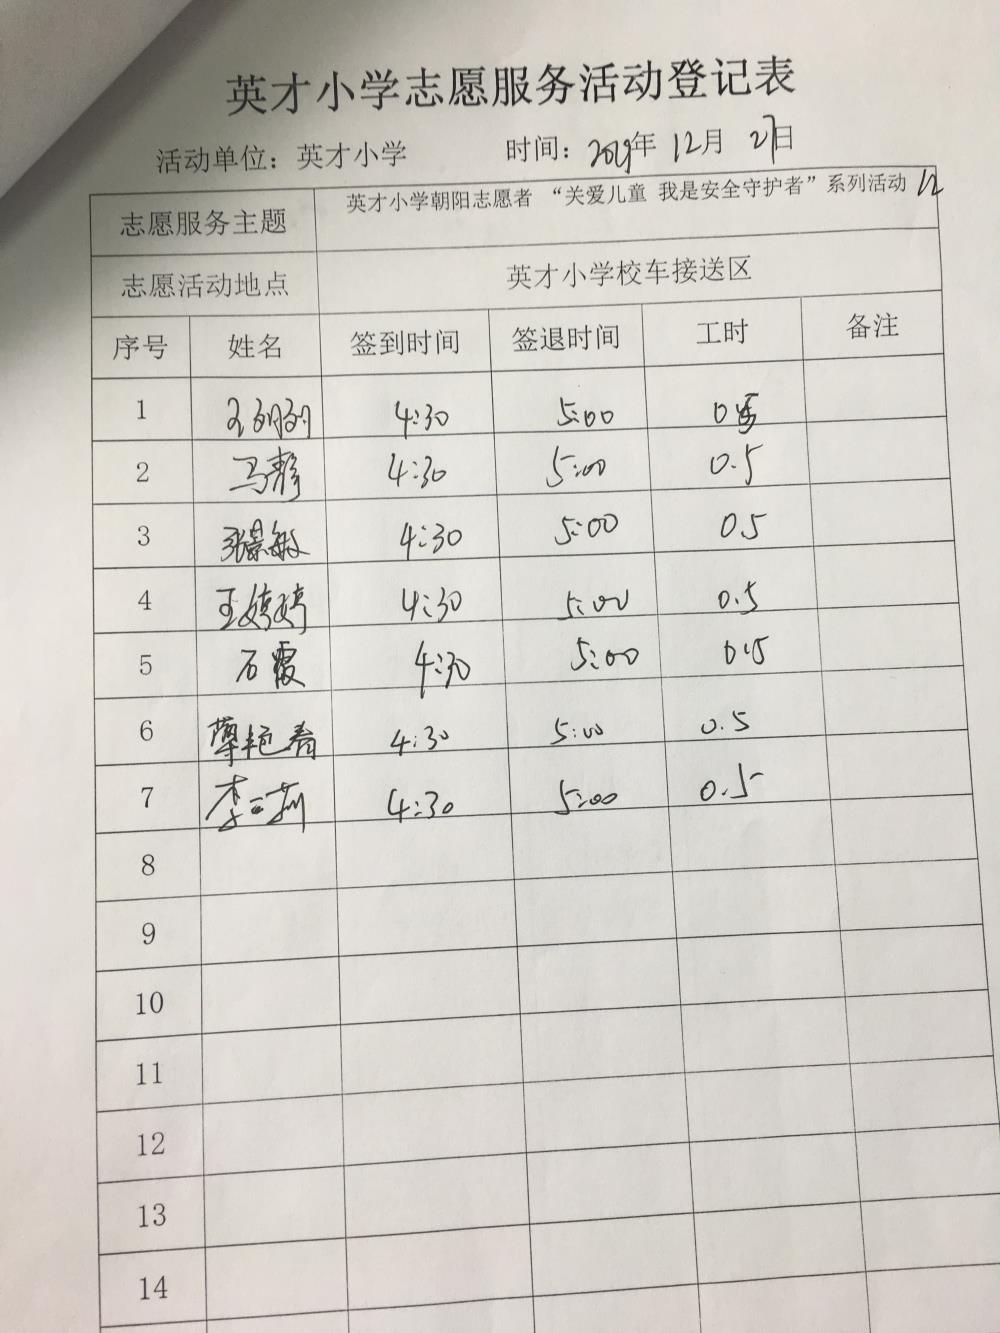 英才小学志愿服务活动登记表
活动单位：英才小学 时间：2019年 12月 27日
志愿服务主题 英才小学朝阳志愿者 “关爱儿童 我是安全守护者”系列活动 12
志愿活动地点 英才小学校车接送区
序号 姓名 签到时间 签退时间 工时 备注
1 王明明 4:30 5:00 0.5
2 马静 4:30 5:00 0.5
3 张景敏 4:30 5:00 0.5
4 王婷婷 4:30 5:00 0.5
5 石霞 4:30 5:00 0.5
6 薄艳春 4:30 5:00 0.5
7 李二莉 4:30 5:00 0.5
8
9
10
11
12
13
14